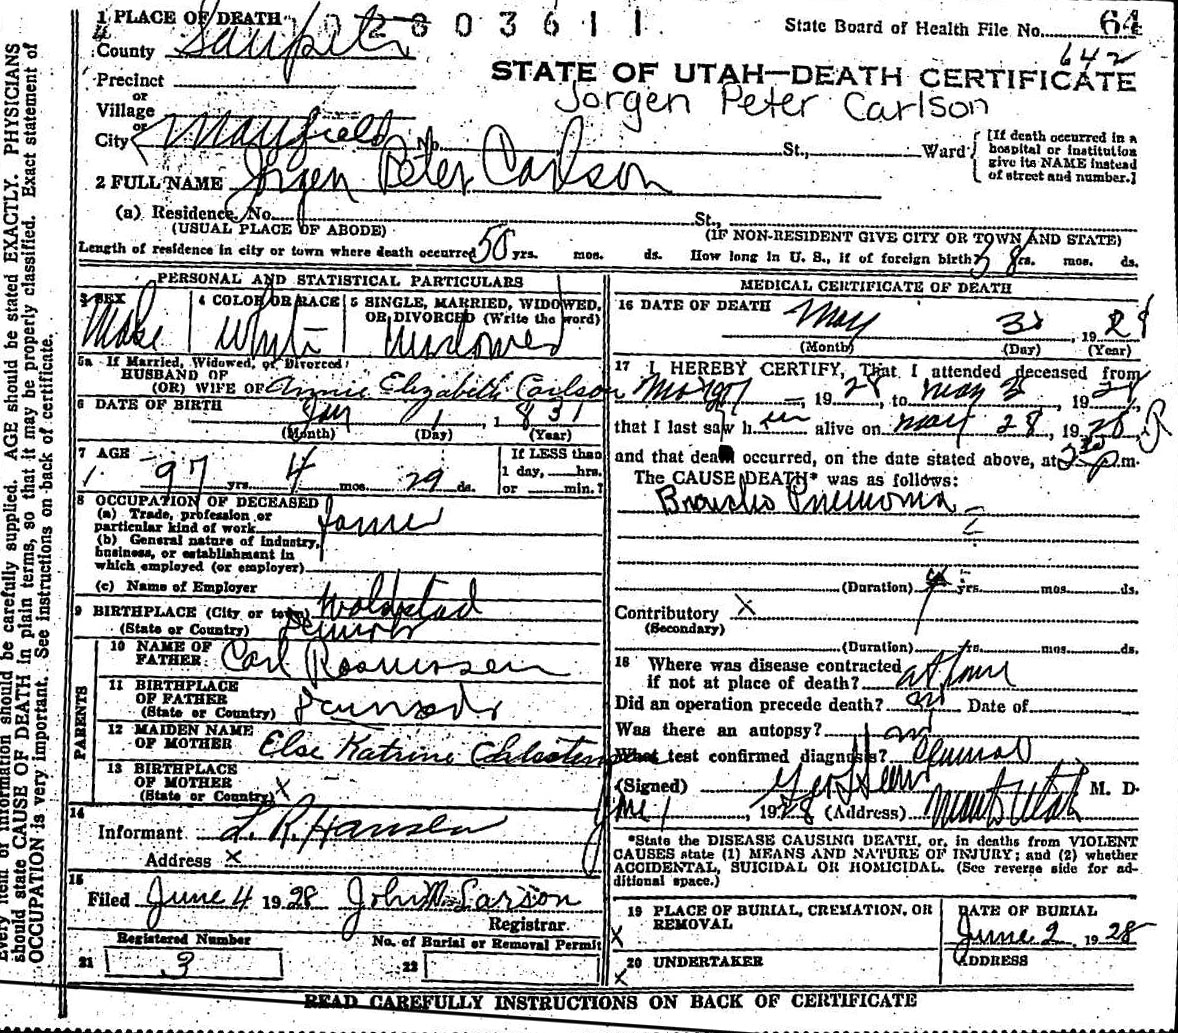 1 PLACE OF DEATH
2803611
State Board of Health File No. 64
642
County Sanpete
STATE OF UTAH—DEATH CERTIFICATE
Jorgen Peter Carlson
Precinct
or
Village
or
City Mayfield No. St., Ward
[If death occurred in a hospital or institution give its NAME instead of street and number.]
2 FULL NAME Jorgen Peter Carlson
(a) Residence. No. St.,
(USUAL PLACE OF ABODE) (IF NON-RESIDENT GIVE CITY OR TOWN AND STATE)
Length of residence in city or town where death occurred 50 yrs. mos. ds. How long in U. S., if of foreign birth? 58 yrs. mos. ds.
PERSONAL AND STATISTICAL PARTICULARS
3 SEX
Male
4 COLOR OR RACE
White
5 SINGLE, MARRIED, WIDOWED, OR DIVORCED (Write the word)
Widowed
5a If Married, Widowed, or Divorced
HUSBAND OF
(OR) WIFE OF Annie Elizabeth Carlson
6 DATE OF BIRTH Jan 1, 1831
(Month) (Day) (Year)
7 AGE
97 yrs. 4 mos. 29 ds.
If LESS than
1 day, hrs.
or min.?
8 OCCUPATION OF DECEASED
(a) Trade, profession or
particular kind of work
(b) General nature of industry,
business, or establishment in
which employed (or employer)
(c) Name of Employer
9 BIRTHPLACE (City or town)
(State or Country)
PARENTS
10 NAME OF
FATHER Carl Rasmussen
11 BIRTHPLACE
OF FATHER
(State or Country)
12 MAIDEN NAME
OF MOTHER Else Katrine
13 BIRTHPLACE
OF MOTHER
(State or Country) X
14
Informant L. R. Hansen
Address X
15
Filed June 4 1928 John M. Larson
Registrar.
Registered Number No. of Burial or Removal Permit
21 3 22
MEDICAL CERTIFICATE OF DEATH
16 DATE OF DEATH
May 1928
(Month) (Day) (Year)
17 I HEREBY CERTIFY, That I attended deceased from
, 1928, to May , 1928
that I last saw h alive on May 28, 1928,
and that death occurred, on the date stated above, at p.m.
The CAUSE DEATH* was as follows:
Broncho Pneumonia
(Duration) yrs. mos. ds.
Contributory X
(Secondary)
(Duration) yrs. mos. ds.
18 Where was disease contracted
if not at place of death? at home
Did an operation precede death? no Date of
Was there an autopsy? no
What test confirmed diagnosis? Clinical
(Signed) M. D.
June 1, 1928 (Address) Manti Utah
*State the DISEASE CAUSING DEATH, or, in deaths from VIOLENT
CAUSES state (1) MEANS AND NATURE OF INJURY; and (2) whether
ACCIDENTAL, SUICIDAL OR HOMICIDAL. (See reverse side for ad-
ditional space.)
19 PLACE OF BURIAL, CREMATION, OR
REMOVAL
X
DATE OF BURIAL
June 2, 1928
20 UNDERTAKER
X
ADDRESS
READ CAREFULLY INSTRUCTIONS ON BACK OF CERTIFICATE
Every item of information should be carefully supplied. AGE should be stated EXACTLY. PHYSICIANS
should state CAUSE OF DEATH in plain terms, so that it may be properly classified. Exact statement of
OCCUPATION is very important. See instructions on back of certificate.